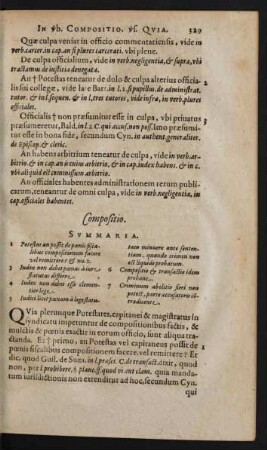 IN vb. COMPOSITIO. vs. QVIA. 329
Quæ culpa veniat in officio commentariensis, vide in
verb. carcer. in cap. an si plures carcerati. vbi plene.
De culpa officialium, vide in verb. negligentia, & supra, vbi
tractamus de iustitia denegata.
An † Potestas teneatur de dolo & culpa alterius officia-
lis sui collegæ, vide la te Bar. in l. 1. ff.
tutor. & in l. sequen. & in l. tres tutores, vide infra, in verb. plures
officiales.
Officialis † non præsumitur esse in culpa, vbi priuatus
præsumeretur, Bald. in l. 2. C. qui accus. non poss. Imo præsumi-
tur esse in bona fide, secundum Cyn. in authent. generaliter.
de Episcop. & cleric.
An habens arbitrium teneatur de culpa, vide in verb. ar-
bitrio, & in cap. an animo arbitrio, & in cap. index habens. & in c.
vbi aliquid est commissum arbitrio.
An officiales habentes administrationem rerum publica-
rum, teneantur de omni culpa, vide in verb. negligentia, in
cap. officiales habentes.
Compositio.
SVMMARIA.
1 Potestas an possit de pœnis fisca-
libus compositionem facere
vel remittere? & nu. 2.
Iudex non debet pœnas à iure
statutas differre.
Iudex non debet esse clemen-
tior lege.
5 Iudex licet pœnam à lege statu-
tam minuere ante senten-
tiam, quando crimen non
est liquido probatum.
6 Compositio & transactio idem
probant.
7 Criminum abolitio fieri non
potest, parte accusatoris con-
tradicente.
QVia plerunque Potestates, capitanei & magistratus in
syndicatu impetuntur de compositionibus factis, &
mulctis & pœnis exactis in toto suo officio, sunt aliqua tra-
ctanda. Et † primo, an Potestas vel capitaneus possit de
pœnis fiscalibus compositionem facere, vel remittere? Et
dic, quod Guil. de Suza. in l. præses. C. de transact. dixit, quod
non, per l. prohibere. § plane. ff. quod vi aut clam. quia manda-
tum iurisdictionis non extenditur ad hoc, secundum Cyn.
qui